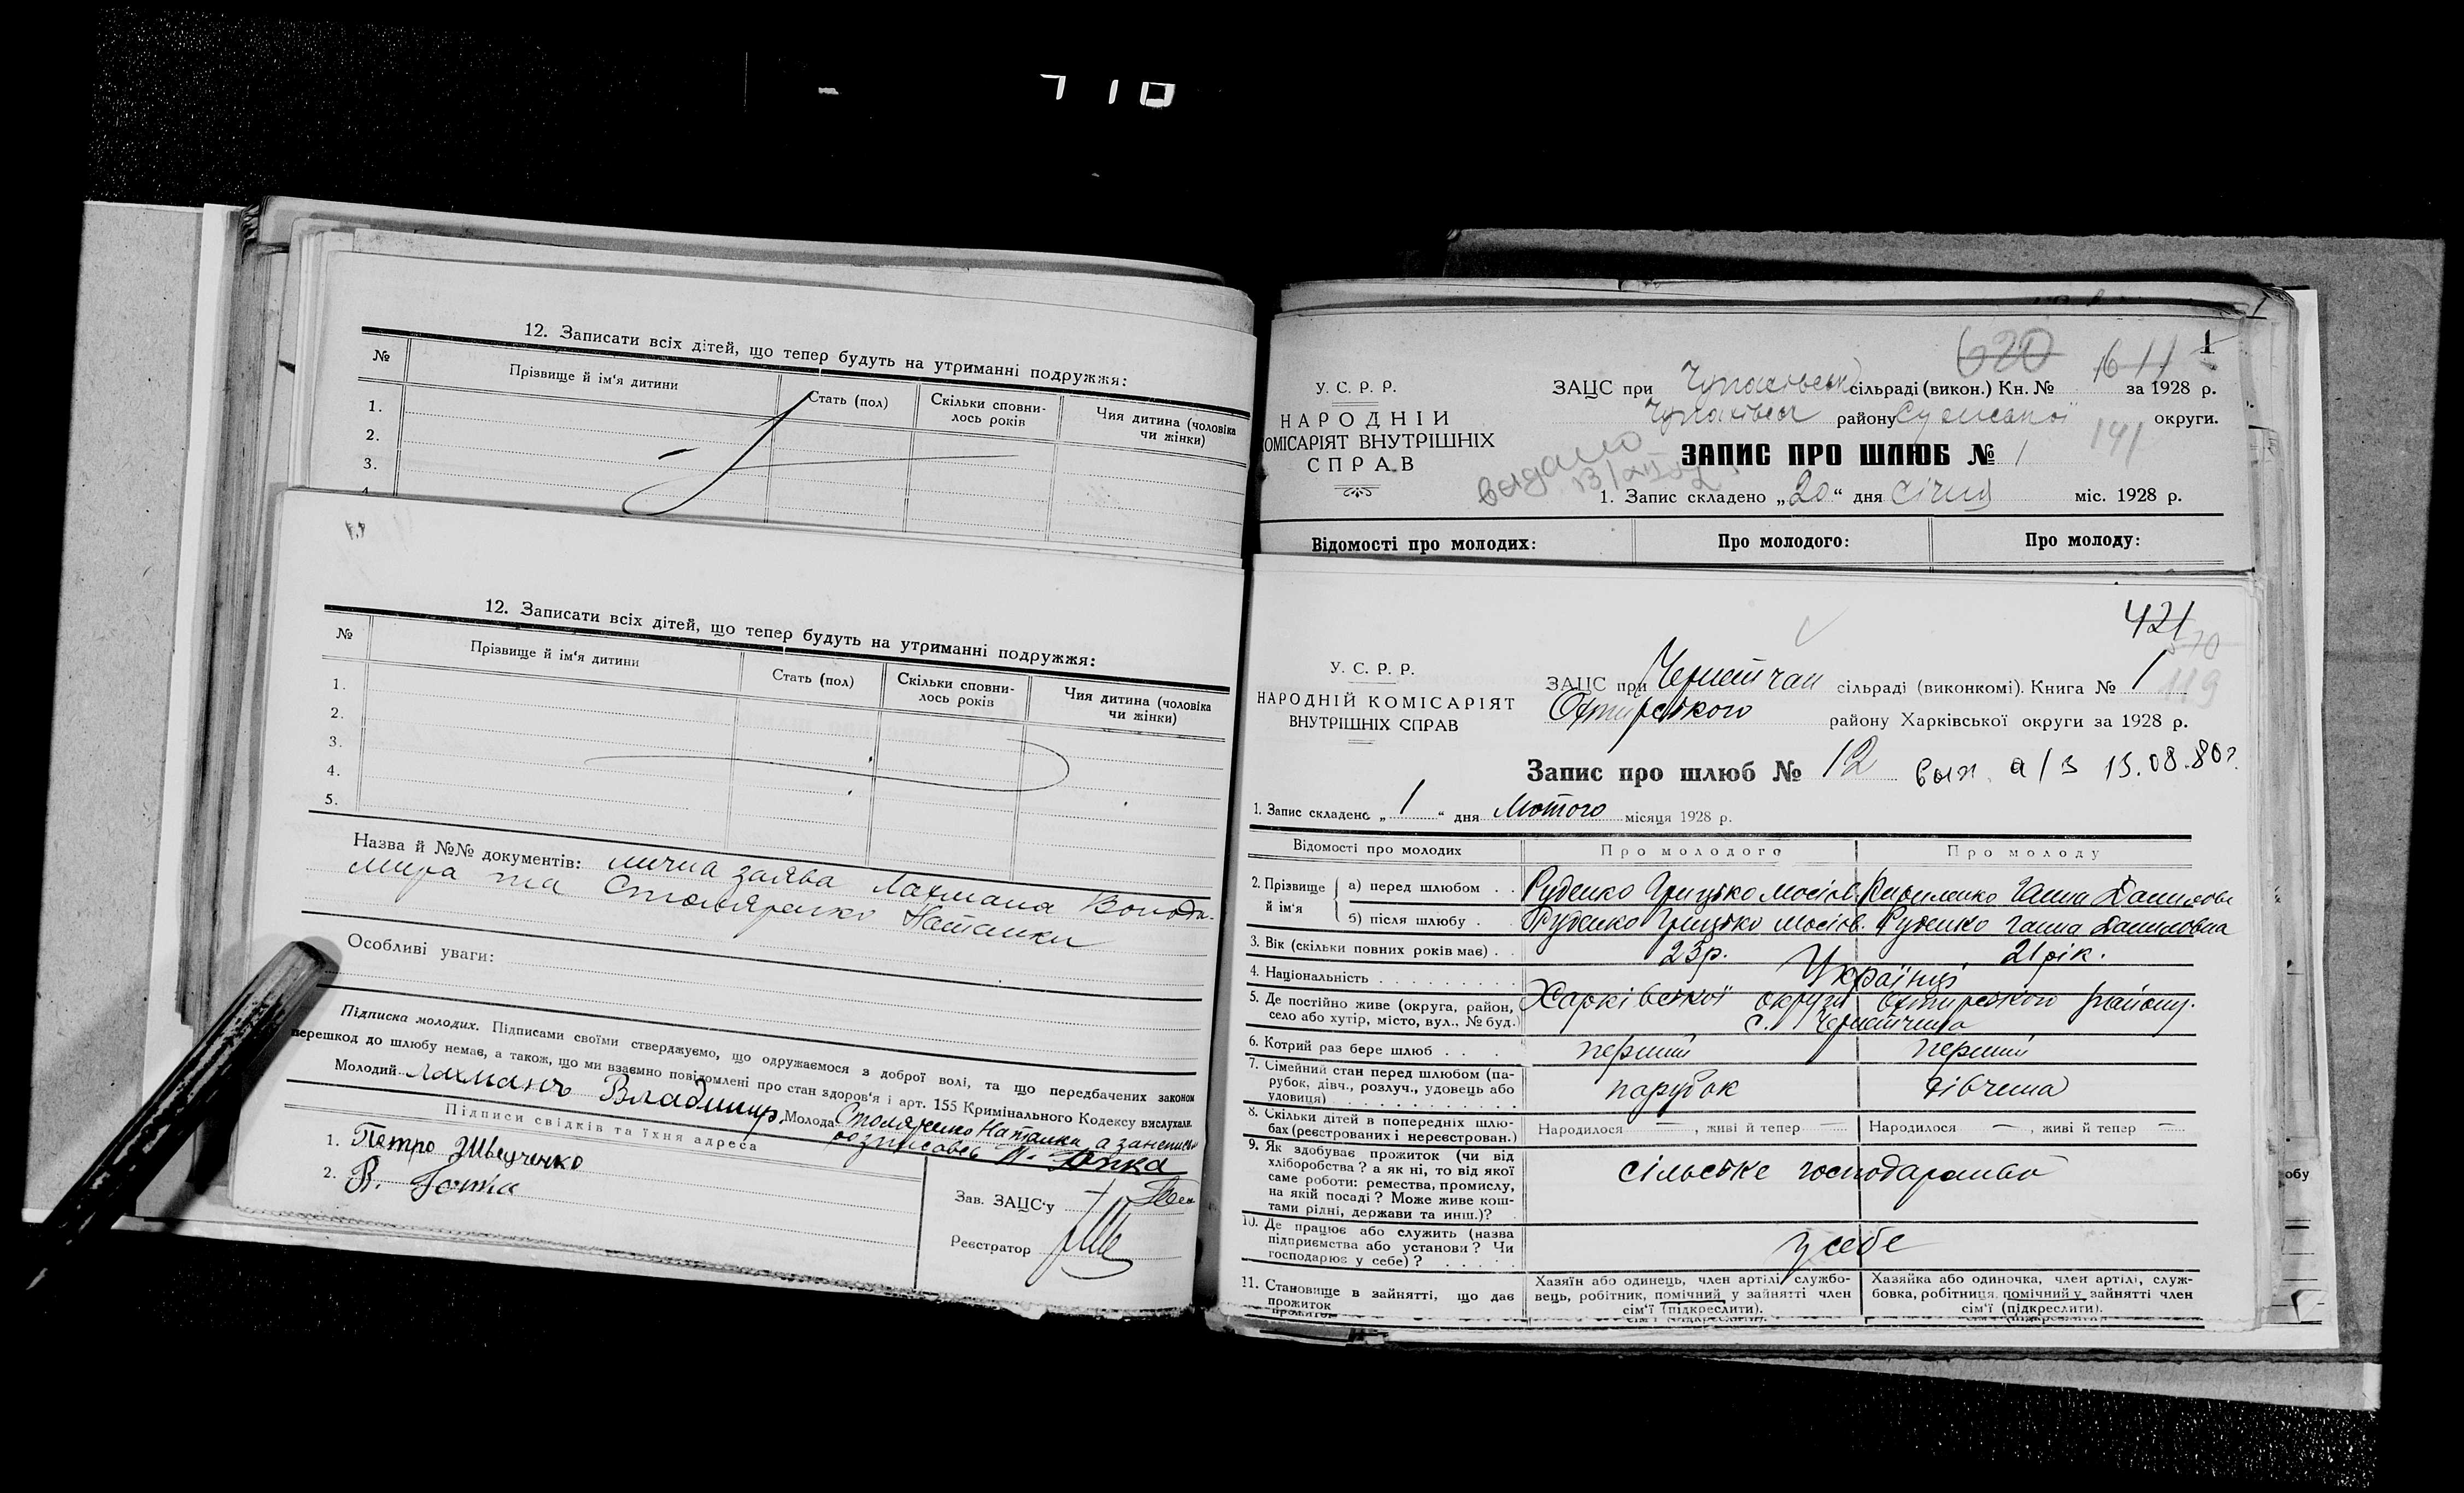 710
12. Записати всіх дітей, що тепер будуть на утриманні подружжя:
№ Прізвище й ім'я дитини Стать (пол) Скільки сповни-лось років Чия дитина (чоловіка чи жінки)
1.
2.
3.
12. Записати всіх дітей, що тепер будуть на утриманні подружжя:
№ Прізвище й ім'я дитини Стать (пол) Скільки сповни-лось років Чия дитина (чоловіка чи жінки)
1.
2.
3.
4.
5.
Назва й №№ документів: лична заява Лахмана Володи-
мира та Столяренко Наталки
Особливі уваги:
Підписка молодих. Підписами своїми стверджуємо, що одружаємося з доброї волі, та що передбачених законом
перешкод до шлюбу немає, а також, що ми взаємно повідомлені про стан здоров'я і арт. 155 Кримінального Кодексу вислухали.
Молодий Лахманъ Владимир Молода Столяренко Наталка, а за
Підписи свідків та їхня адреса
1. Петро Шведченко
2. В.
Зав. ЗАЦС'у
Реєстратор
620 1611 1
У. С. Р. Р.
НАРОДНІЙ
КОМІСАРІЯТ ВНУТРІШНІХ
СПРАВ
ЗАЦС при Чупахівськ сільраді (викон.) Кн. № за 1928 р.
Чупахівськ району Сумської округи.
141
видано
ЗАПИС ПРО ШЛЮБ № 1
1. Запис складено „20“ дня січня міс. 1928 р.
Відомості про молодих: Про молодого: Про молоду:
421
570
119
У. С. Р. Р.
НАРОДНІЙ КОМІСАРІЯТ
ВНУТРІШНІХ СПРАВ
ЗАЦС при сільраді (виконкомі). Книга № 1
Охтирського району Харківської округи за 1928 р.
Запис про шлюб № 12 вып. а/з 13.08.80г.
1. Запис складено „1“ дня Лютого місяця 1928 р.
Відомості про молодих Про молодого Про молоду
2. Прізвище й ім'я а) перед шлюбом . . Руденко Грицько Мосіїв. Кириленко Ганна Данилова
б) після шлюбу . Руденко Грицько Мосіїв. Руденко Ганна Даниловна
3. Вік (скільки повних років має) . . 23р. 21 рік.
4. Національність . . . . . . . . . Українці
5. Де постійно живе (округа, район, село або хутір, місто, вул., № буд.) Харківської округи Охтирського району.
с. Чернеччина
6. Котрий раз бере шлюб . . . . перший перший
7. Сімейний стан перед шлюбом (па-рубок, дівч., розлуч., удовець або удовиця) . . . . . . . . . . . . парубок дівчина
8. Скільки дітей в попередніх шлю-бах (реєстрованих і нереєстрован.) Народилося — , живі й тепер — Народилося — , живі й тепер —
9. Як здобуває прожиток (чи від хліборобства? а як ні, то від якої саме роботи: ремества, промислу, на якій посаді? Може живе кош-тами рідні, держави та инш.)? сільське господарство
10. Де працює або служить (назва підприємства або установи? Чи господарює у себе)? . . . . . у себе
11. Становище в зайнятті, що дає прожиток Хазяїн або одинець, член артілі службо-вець, робітник, помічний у зайнятті член сім'ї (підкреслити). Хазяйка або одиночка, член артілі, служ-бовка, робітниця, помічний у зайнятті член сім'ї (підкреслити).